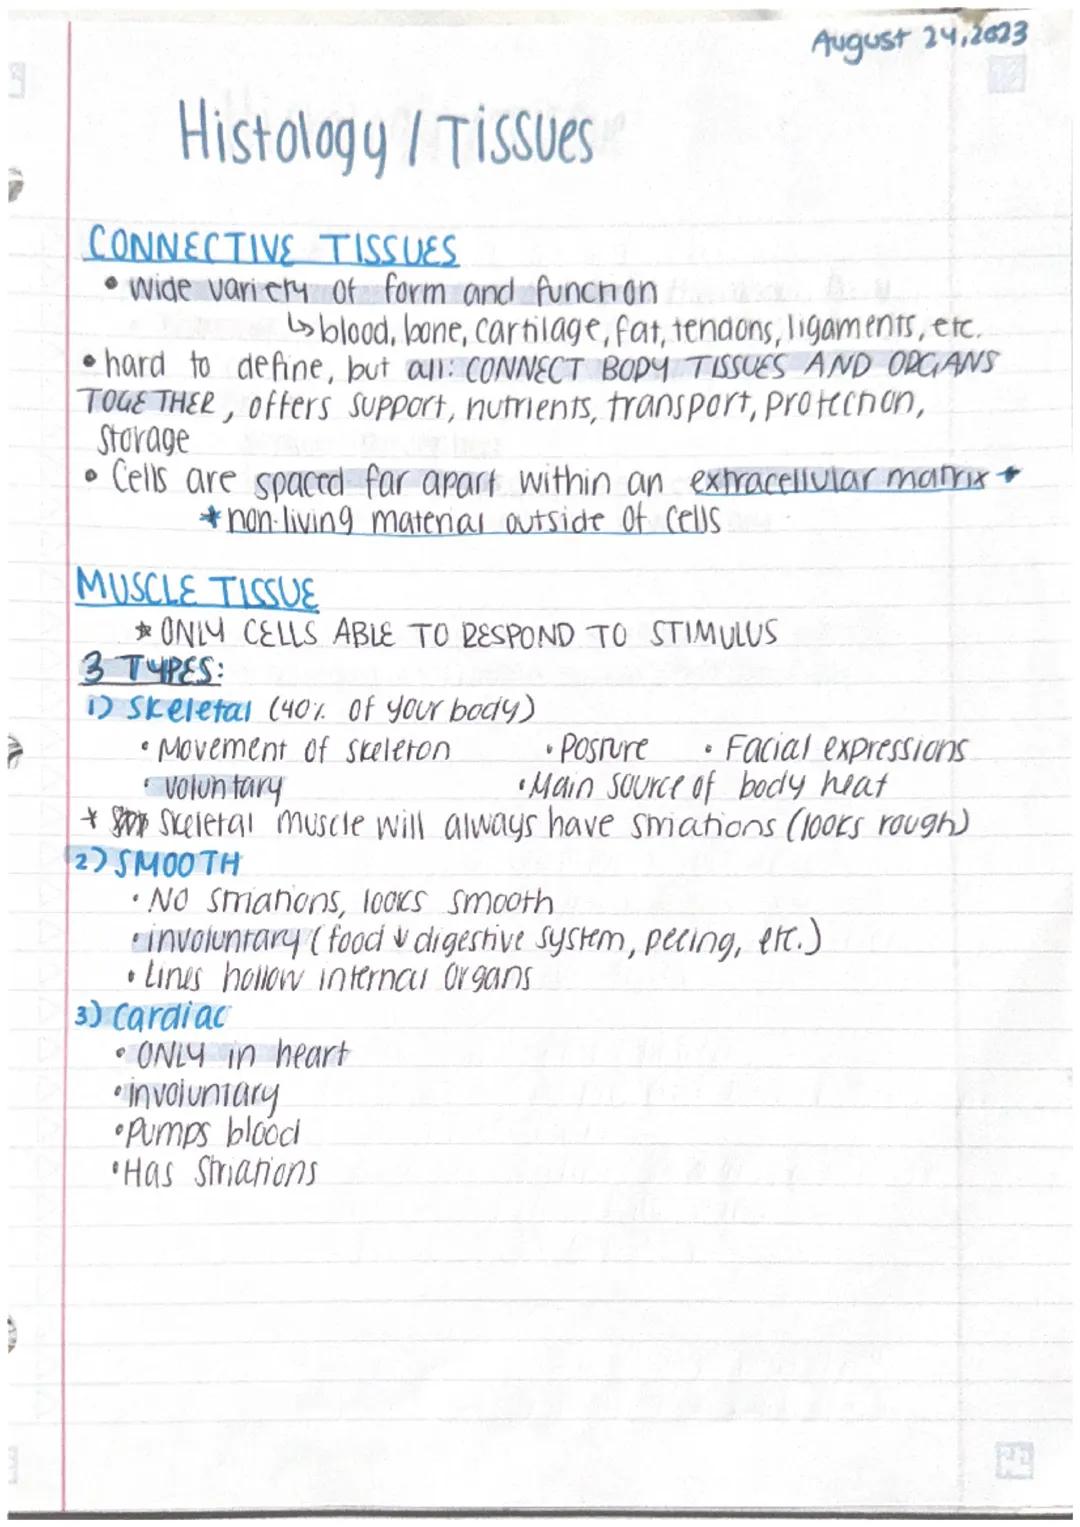 August 24, 2023
Histology / Tissues
CONNECTIVE TISSUES
• wide variety of form and function
↳ blood, bone, cartilage, fat, tendons, ligaments, etc.
• hard to define, but all: CONNECT BODY TISSUES AND ORGANS
TOGETHER, offers support, nutrients, transport, protection,
storage
• Cells are spaced far apart within an extracellular matrix *
* non-living material outside of cells
MUSCLE TISSUE
* ONLY CELLS ABLE TO RESPOND TO STIMULUS
3 TYPES:
1) Skeletal (40% of your body)
• Movement of skeleton • Posture • Facial expressions
• voluntary • Main source of body heat
* Skeletal muscle will always have striations (looks rough)
2) SMOOTH
• NO striations, looks smooth
• involuntary (food ↓ digestive system, peeing, etc.)
• Lines hollow internal organs
3) Cardiac
• ONLY in heart
• involuntary
• Pumps blood
• Has Striations